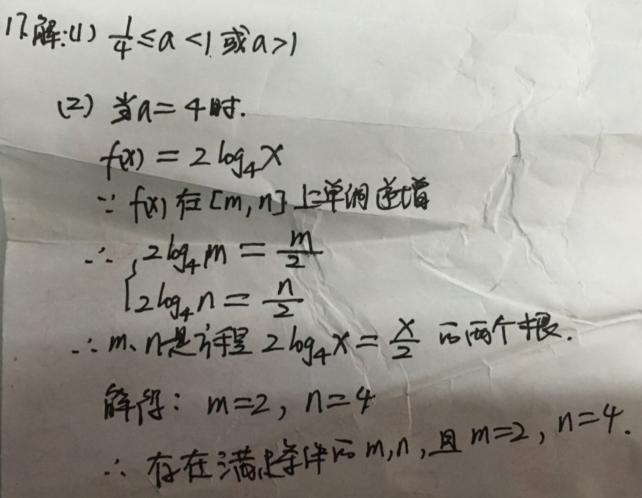 17.解:(1) 1/4≤a<1或a>1
(2) 当a=4时.
f(x)=2log₄x
∵ f(x)在[m,n]上单调递增
∴ {2log₄m=m/2
2log₄n=n/2
∴ m、n是方程 2log₄x=x/2 的两个根.
解得: m=2, n=4
∴ 存在满足条件的m,n,且m=2, n=4.